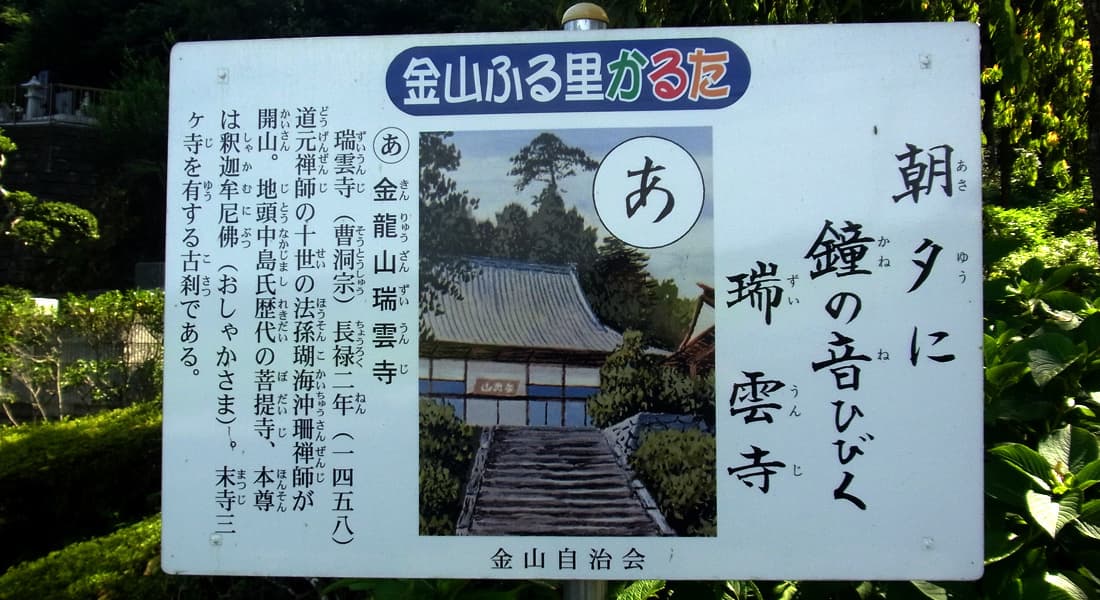 金山ふる里かるた
朝夕に
鐘の音ひびく
瑞雲寺
あ
あ 金龍山瑞雲寺
瑞雲寺（曹洞宗）長禄二年（一四五八）
道元禅師の十世の法孫瑚海沖珊禅師が
開山。地頭中島氏歴代の菩提寺、本尊
は釈迦牟尼佛（おしゃかさま）。末寺三
ケ寺を有する古刹である。
金山自治会